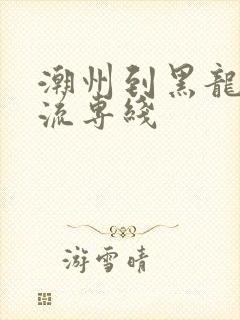 潮州到黑龍
流専綫
游雪晴